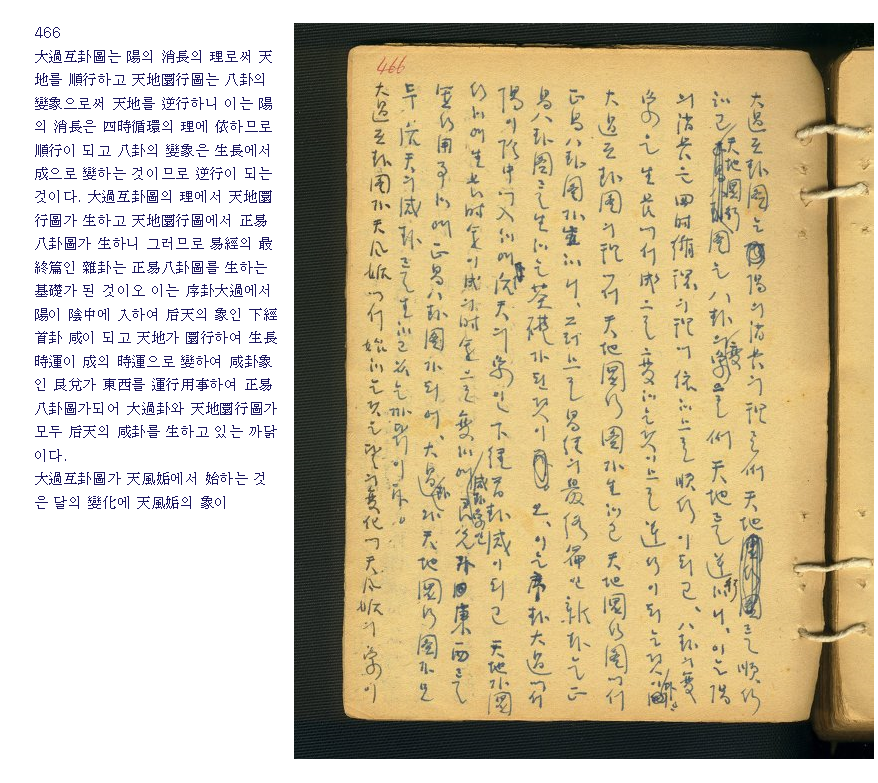 466
大過互卦圖는 陽의 消長의 理로써 天
地를 順行하고 天地圜行圖는 八卦의
變象으로써 天地를 逆行하니 이는 陽
의 消長은 四時循環의 理에 依하므로
順行이 되고 八卦의 變象은 生長에서
成으로 變하는 것이므로 逆行이 되는
것이다. 大過互卦圖의 理에서 天地圜
行圖가 生하고 天地圜行圖에서 正易
八卦圖가 生하니 그러므로 易經의 最
終篇인 雜卦는 正易八卦圖를 生하는
基礎가 된 것이오 이는 序卦大過에서
陽이 陰中에 入하여 后天의 象인 下經
首卦 咸이 되고 天地가 圜行하여 生長
時運이 成의 時運으로 變하여 咸卦象
인 艮兌가 東西를 運行用事하여 正易
八卦圖가되어 大過卦와 天地圜行圖가
모두 后天의 咸卦를 生하고 있는 까닭
이다.
大過互卦圖가 天風姤에서 始하는 것
은 달의 變化에 天風姤의 象이
466
大過互卦圖는 陽의 消長의 理로써 天地를 順行
하고 天地圜行圖는 八卦의 變象으로써 天地를 逆行하니, 이는 陽
의 消長은 四時循環의 理에 依하므로 順行이 되고, 八卦의 變
象은 生長에서 成으로 變하는 것이므로 逆行이 되는 것이다.
大過互卦圖의 理에서 天地圜行圖가 生하고 天地圜行圖에서
正易八卦圖가 生하니, 그러므로 易經의 最終篇인 雜卦는 正
易八卦圖를 生하는 基礎가 된 것이오, 이는 序卦大過에서
陽이 陰中에 入하여 后天의 象인 下經首卦咸이 되고 天地가 圜
行하여 生長時運이 成의 時運으로 變하여 咸卦象인 艮兌가 東西를
運行用事하여 正易八卦圖가 되어, 大過卦와 天地圜行圖가 모
두 后天의 咸卦를 生하고 있는 까닭이다.
大過互卦圖가 天風姤에서 始하는 것은 달의 變化에 天風姤의 象이